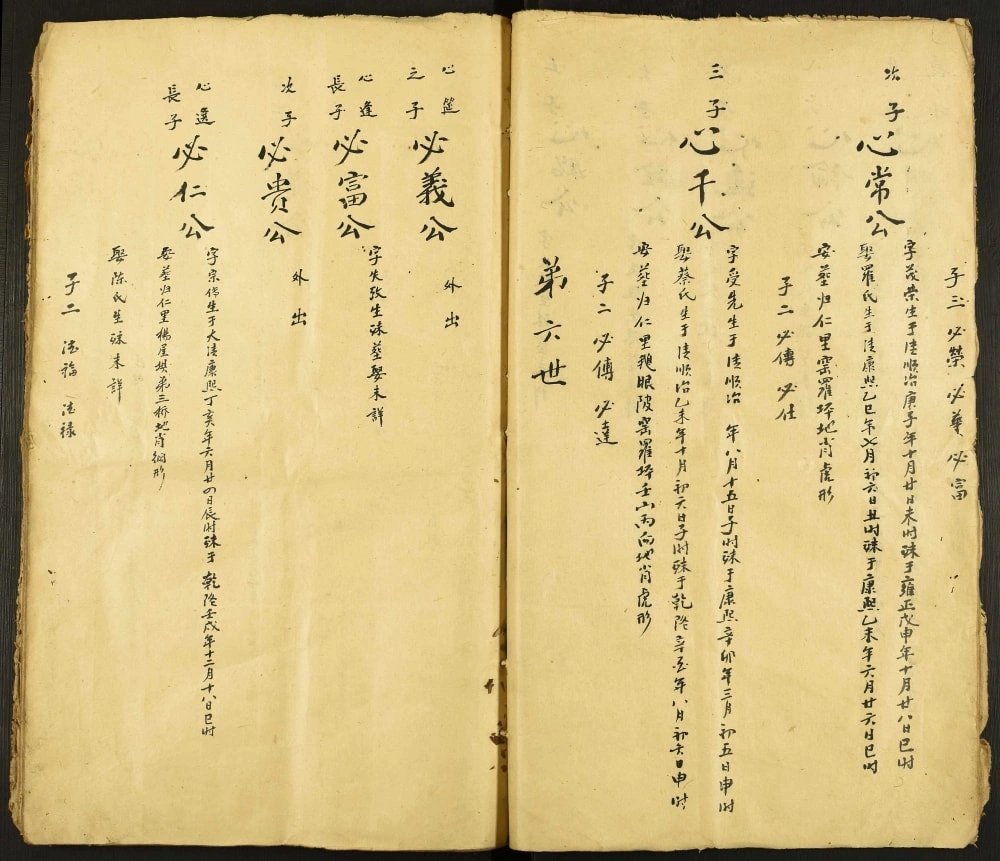 子三 必榮 必華 必富
次子 心常公
字茂榮生于清順治庚子年十月廿日未时殁于雍正戊申年十月廿八日巳时
娶羅氏生于清康熙乙巳年七月初六日丑时殁于康熙乙未年六月廿六日巳时
安葬归仁里窑羅坪地肖虎形
子二 必傳 必仕
三子 心千公
字受先生于清順治 年八月十五日子时殁于康熙辛卯年三月初五日申时
娶蔡氏生于清順治乙未年十月初六日子时殁于乾隆辛酉年八月初六日申时
安葬归仁里鵝眼陂窑羅坪壬山丙向地肖虎形
子二 必傳 必達
弟六世
心 之子 必義公 外出
心逢長子 必富公
字失致生殁葬娶未詳
次子 必貴公 外出
心逢長子 必仁公
字宗偉生于大清康熙丁亥年六月廿四日辰时殁于 乾隆壬戍年十二月十八日巳时
安葬归仁里楊屋垻弟三桥地肖 形
娶陳氏生殁未詳
子二 法福 法禄